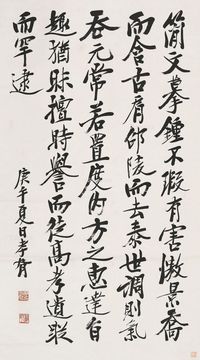 簡文摹鍾不瑕有害傲景喬
而含古肩邵陵而去泰世調則氣
吞元常若置度內方之惠達自
趣猶昧擅時譽而徒高考遺蹤
而罕逮
庚午夏日孝胥